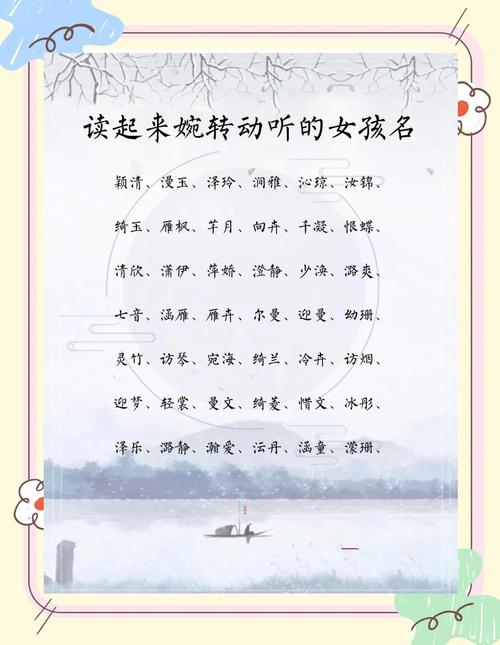 读起来婉转动听的女孩名
颖清、漫玉、泽玲、涧雅、沁琼、汝锦、
绮玉、雁枫、芊月、向卉、千凝、恨蝶、
清欣、潇伊、萍娇、澄静、少涣、潞爽、
七音、涵雁、雁卉、尔曼、迎曼、幼珊、
灵竹、访琴、宛海、绮兰、冷卉、访烟、
迎梦、轻裳、曼文、绮菱、惜文、冰彤、
泽乐、潞静、瀚爱、沄丹、涵童、濛珊、